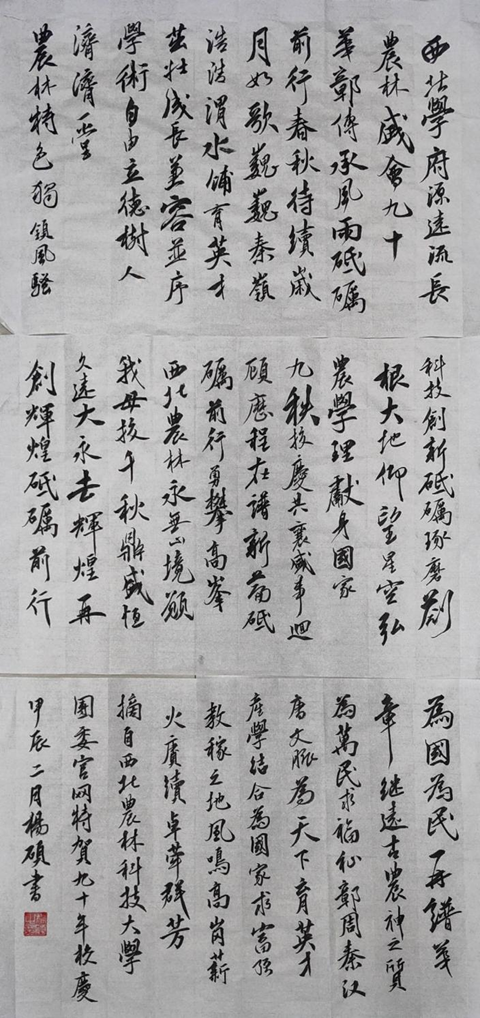 西北學府源遠流長
農林盛會九十
華彰傳承風雨砥礪
前行春秋待續歲
月如歌巍巍秦嶺
浩浩渭水哺育英才
茁壯成長兼容並序
學術自由立德樹人
濟濟一堂
農林特色獨領風騷
科技創新砥礪琢磨劄
根大地仰望星空弘
農學理獻身國家
九秩校慶共襄盛事迴
顧歷程在譜新篇砥
礪前行勇攀高峯
西北農林永無止境願
我母校千秋鼎盛恒
久遠大永去輝煌再
創輝煌砥礪前行
為國為民再譜華
章繼遠古農神之質
為萬民求福祉彰周秦汉
唐文脈為天下育英才
產學結合為國家求富强
教稼之地風鳴高崗薪
火賡續卓犖群芳
摘自西北農林科技大學
團委官网特賀九十年校慶
甲辰二月楊碩書